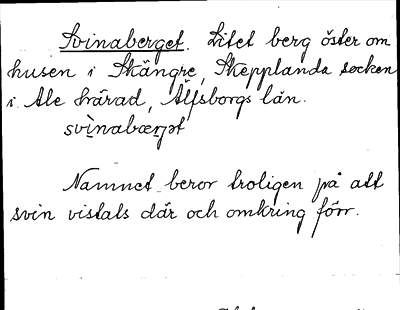 Svinaberget. Litet berg öster om
husen i Skängre, Skepplanda socken
i Ale härad, Älfsborgs län.
svìnabærjət
Namnet beror troligen på att
svin vistats där och omkring förr.